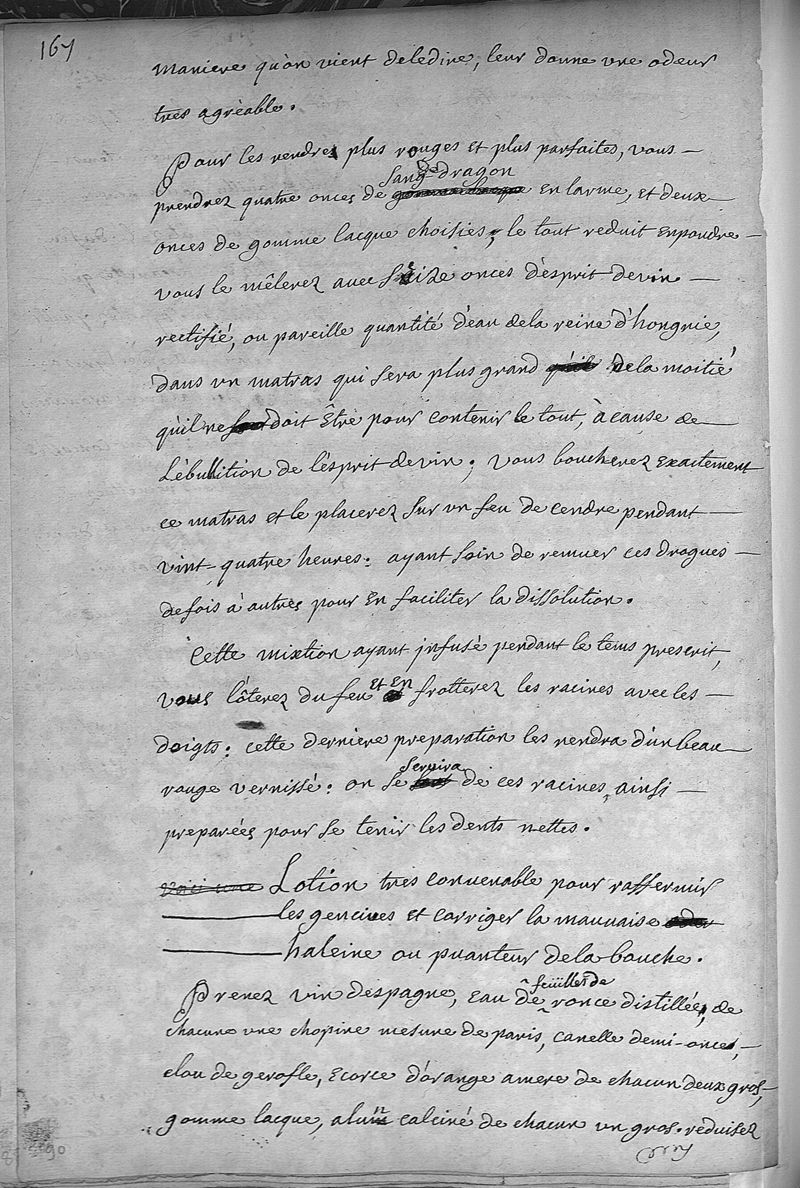 167
maniere qu'on vient deledire, leur donne une odeur
tres agréable.
Pour les rendre plus rouges et plus parfaites, vous
sang de dragon
prendrez quatre onces de gomme lacque en larme, et deux
onces de gomme lacque choisies; le tout reduit enpoudre
vous le mêlerez avec seize onces d'esprit devin
rectifié, ou pareille quantité d'eau dela reine d'hongrie,
dans un matras qui sera plus grand qu'il dela moitié
qu'il ne doit être pour contenir le tout, à cause de
l'ébullition de l'esprit devin; vous boucherez exactement
ce matras et le placerez sur un feu de cendre pendant
vint-quatre heures: ayant soin de remuer ces drogues
defois à autres pour en faciliter la dissolution.
Cette mixtion ayant infusé pendant le tems prescrit,
et en
vous l'ôterez du feu frotterez les racines avec les
doigts: cette derniere preparation les rendra d'un beau
servira
rouge vernissé: on se de ces racines, ainsi
preparées pour se tenir les dents nettes.
Voici une Lotion tres convenable pour raffermir
les gencives et corriger la mauvaise odeur
haleine ou puanteur dela bouche.
feüilles de
Prenez vin d'espagne, eau de ronce distillée, de
chacune une chopine mesure de paris, canelle demi-once,
clou de gerofle, ecorce d'orange amere de chacun deux gros,
gomme lacque, alun calciné de chacun un gros. reduisez
90